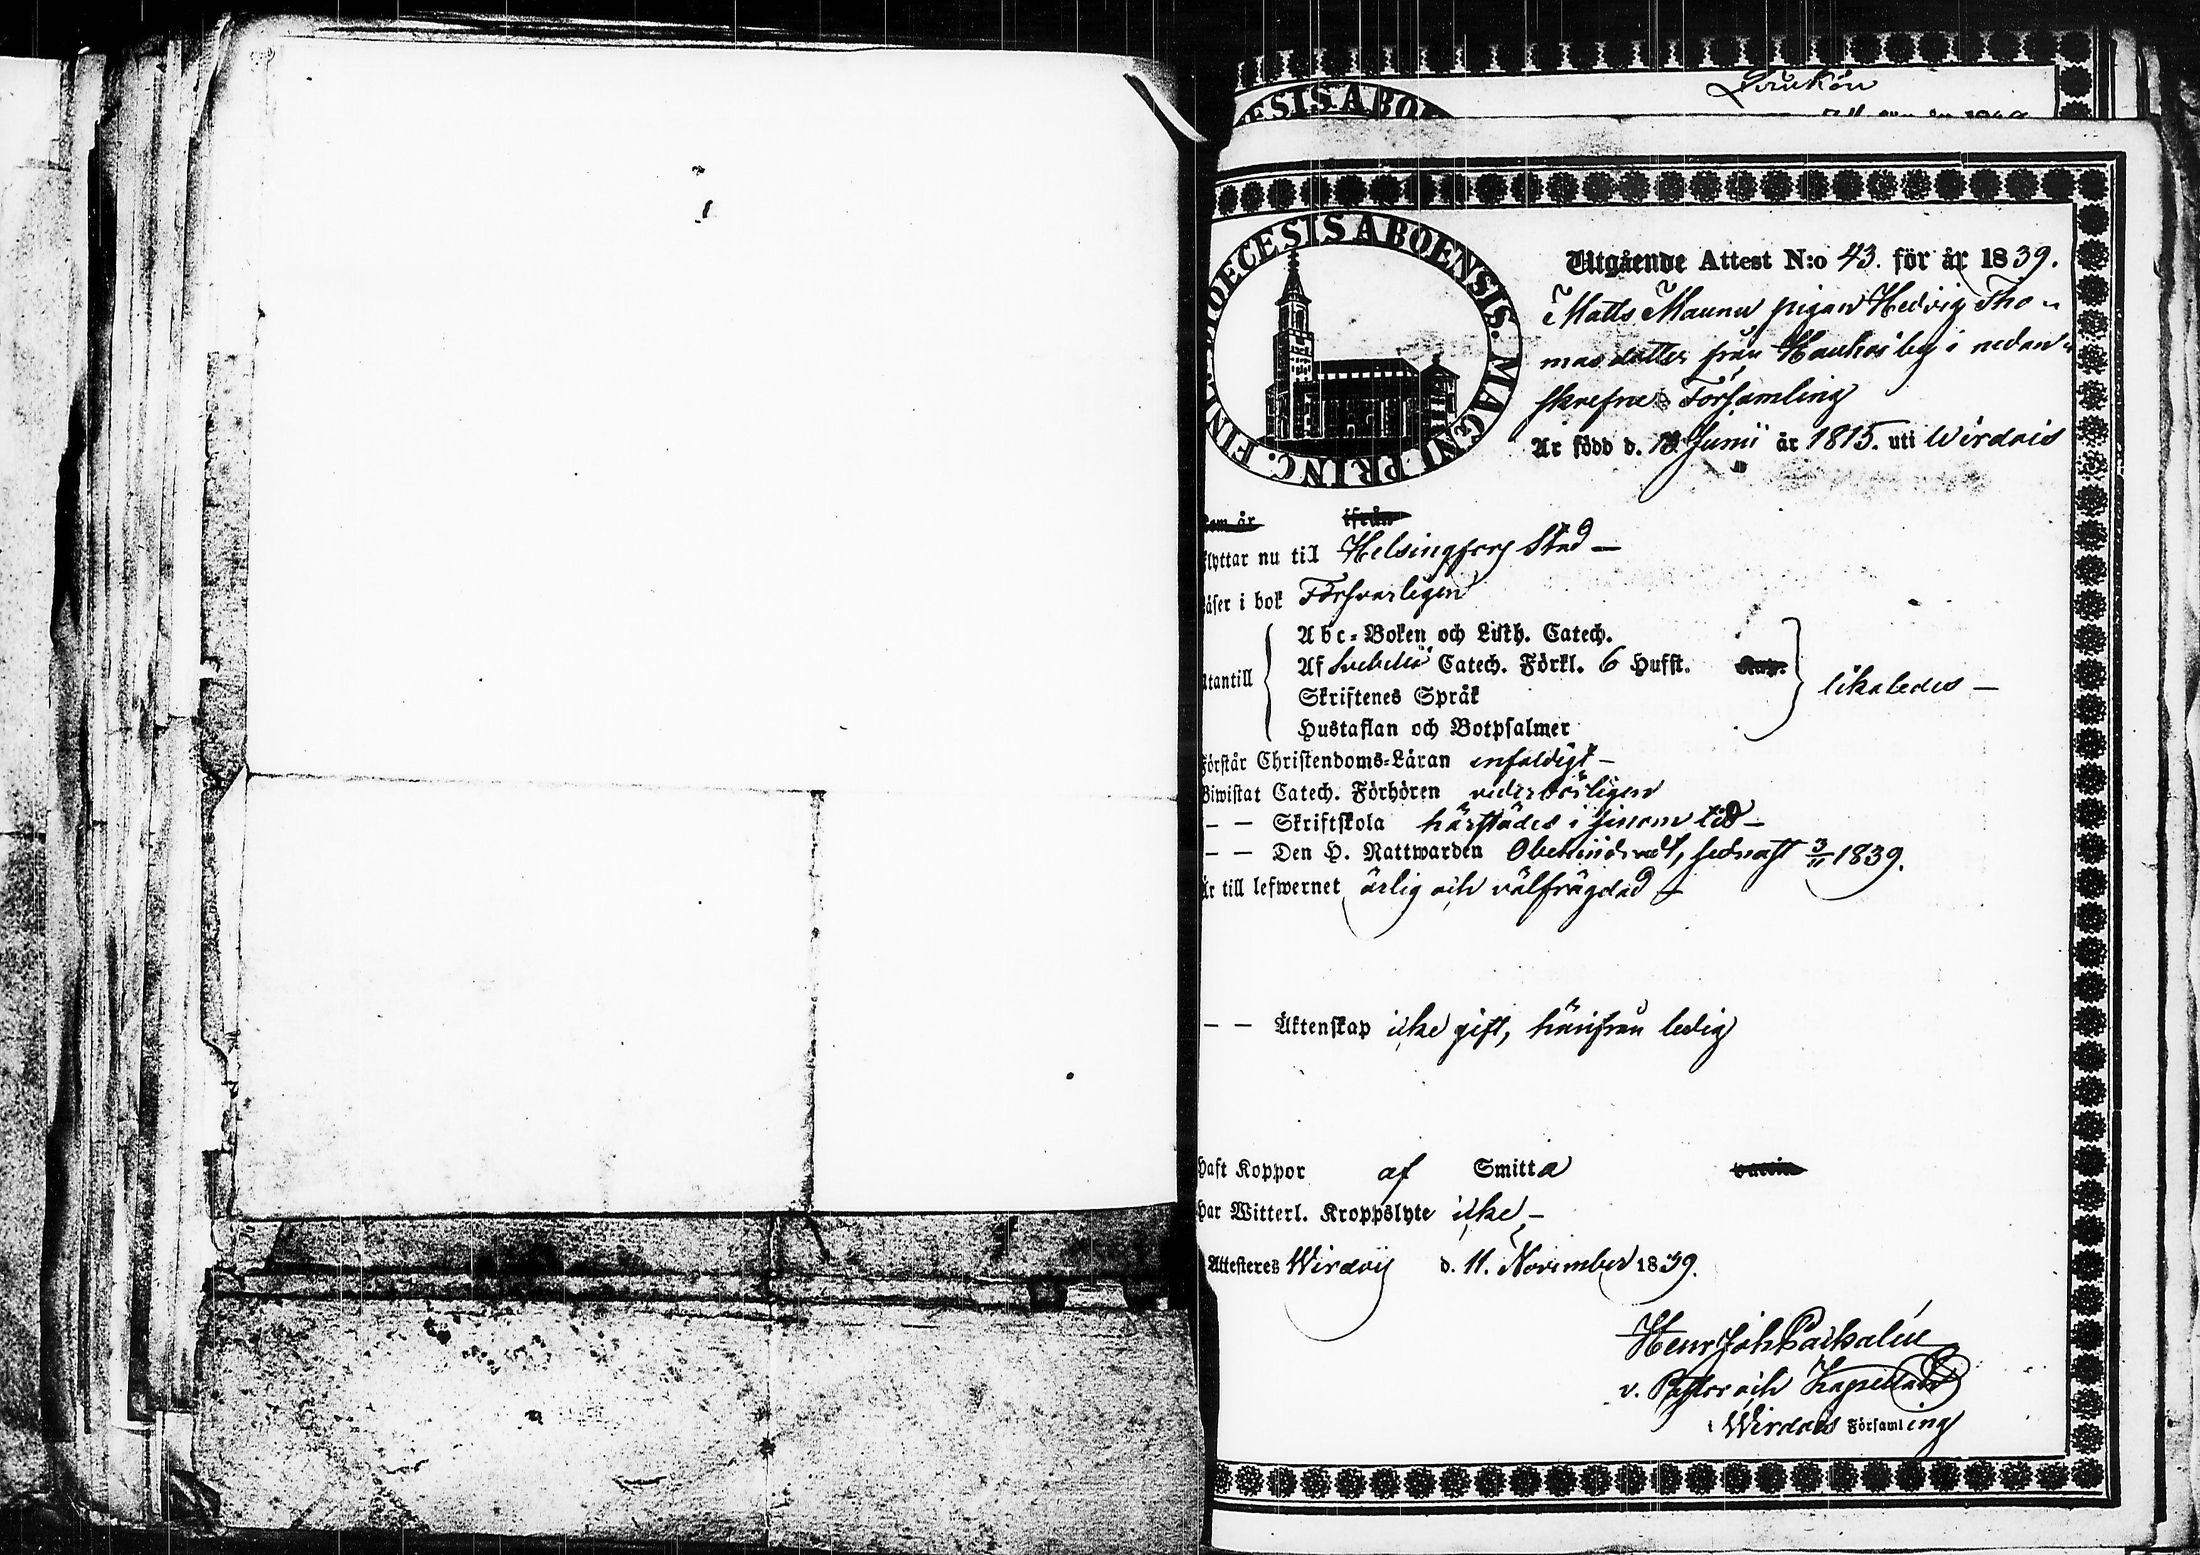 Linkön
ESIS ABO
FINL. DIOECESIS ABOENSIS. MAGNI PRINC.
Utgående Attest N:o 43. för år 1839.
Matts Maunu pigan Hedvig Tho-
masdotter från Haukois by i nedan-
skrefne Församling
Är född d. 13 Junii år 1815. uti Wirdois
kom år ifrån
flyttar nu till Helsingfors Stad —
läser i bok Försvarligen
Abc-Boken och Luth. Catech.
Af Svebelii Catech. Förkl. 6 Hufst.
utantill likaledes —
Skriftenes Språk
Hustaflan och Botpsalmer
förstår Christendoms-Läran enfaldigt —
Biwistat Catech. Förhören vederbörligen
— — Skriftskola härstädes i sinom tid —
— — Den H. Nattwarden Obehindradt, sednast 3/11 1839.
Är till lefwernet ärlig och välfrägdad —
— — Äktenskap icke gift, härifrån ledig
Haft Koppor af Smitta vaccin
Har Witterl. Kroppslyte icke —
Attesteres Wirdois d. 11. November 1839.
Henr Joh
v. Pastor och Kapellan
i Wirdois Församling